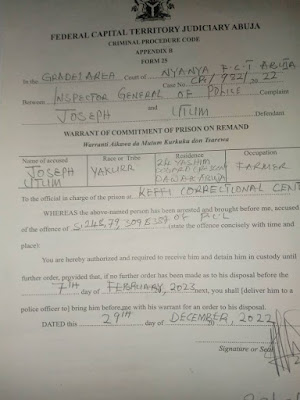 FEDERAL CAPITAL TERRITORY JUDICIARY ABUJA
CRIMINAL PROCEDURE CODE
APPENDIX B
FORM 25
In the GRADE 1 AREA Court of NYANYA F.C.T ABUJA
Case No. CR/732/2022
Between INSPECTOR GENERAL OF POLICE Complaint
and
JOSEPH UTUM Defendant
WARRANT OF COMMITMENT OF PRISON ON REMAND
Warranti Aikawa da Mutum Kurkuku don Tsarewa
Name of accused Race or Tribe Residence Occupation
JOSEPH UTUM YAKURR DAKARUWA FARMER
To the official in charge of the prison at KEFFI CORRECTIONAL CENT
WHEREAS the above-named person has been arrested and brought before me, accused
of the offence of S: 248, 79, 309 & 387 OF P.C.L (state the offence concisely with time and
place):
You are hereby authorized and required to receive him and detain him in custody until
further order, provided that, if no further order has been made as to his disposal before the
7TH day of FEBRUARY, 2023 next, you shall [deliver him to a
police officer to] bring him before me with his warrant for an order to his disposal.
DATED this 29th day of DECEMBER, 2022
Signature or Seal